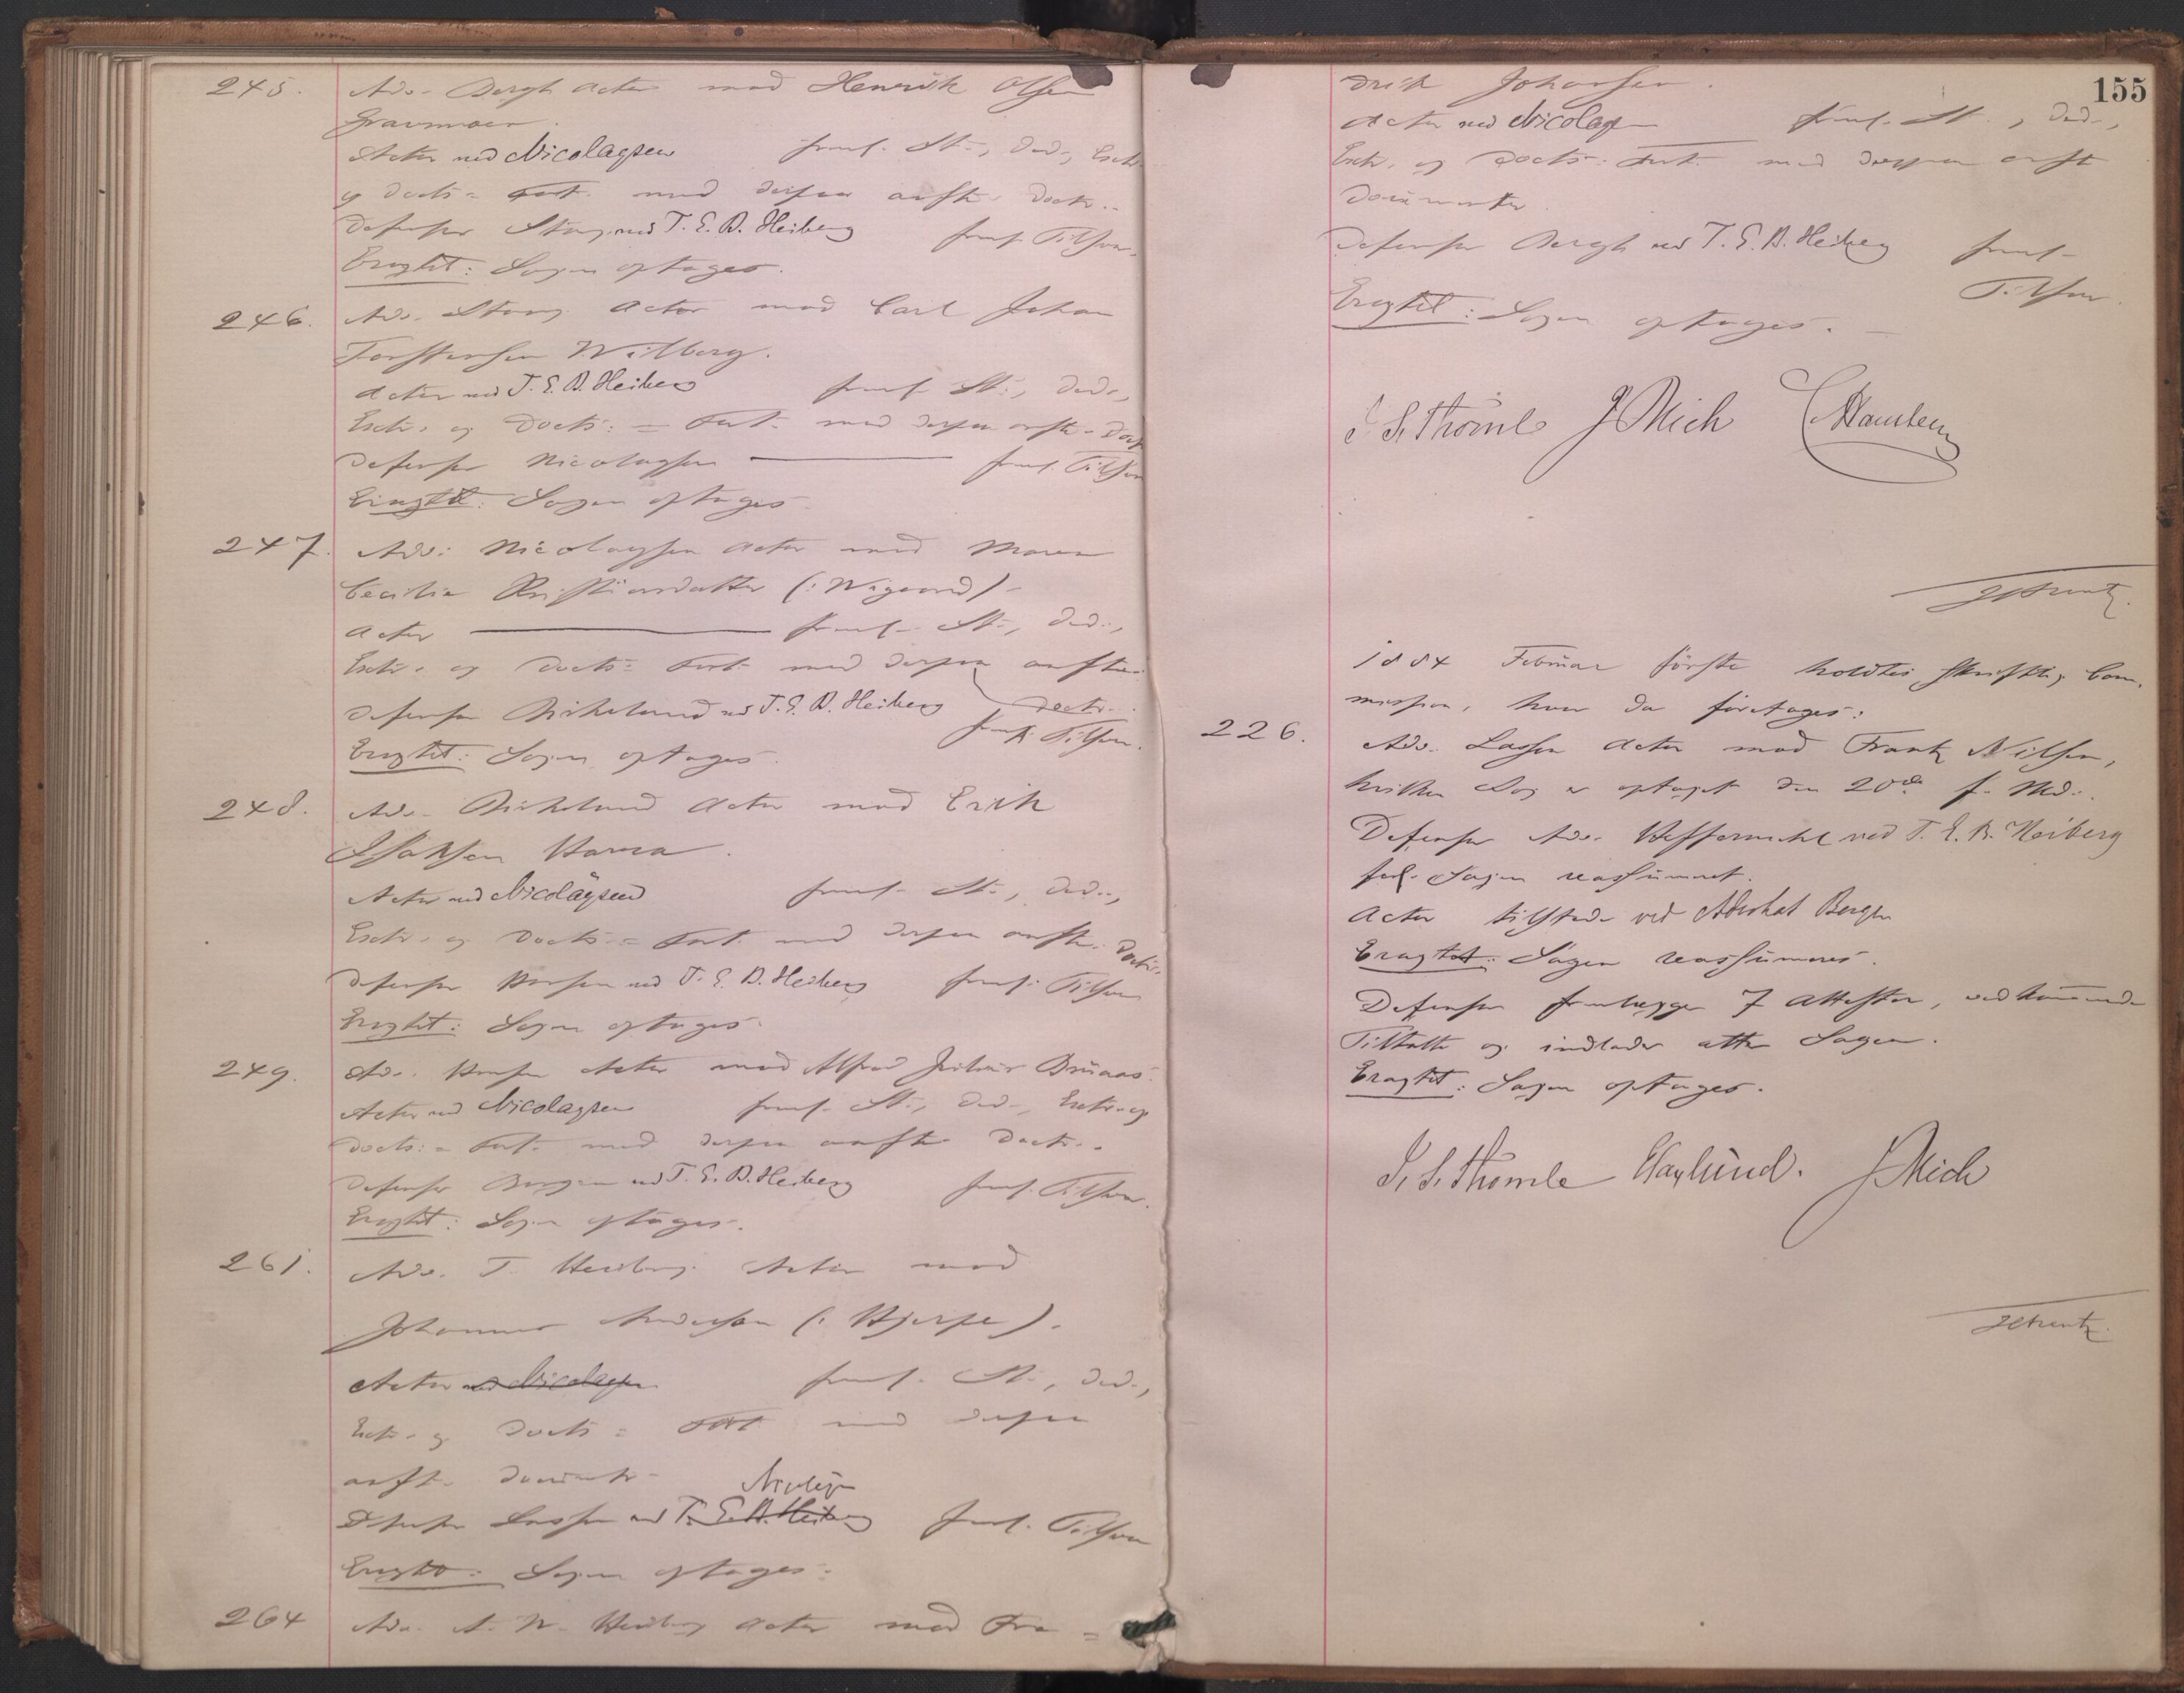 245. Adv. Bergh Actor mod Henrik Olsen
Gravmoen.
Actor ved Nicolaysen fremł. St., Ded., Exctr.
og Docts. = Fort. med derpaa anfte Doctr.
Defensor Stang ved T. E. B. Heiberg fremł. Tilsvar.
Eragtet: Sagen optages.
246. Adv. Stang Actor mod Carl Johan
Torstensen Wilberg.
Actor ved T. E. B. Heiberg fremł. St., Ded.,
Exctr. og Docts: = Fort. med derpaa anfte Doct
Defensor Nicolaysen fremł. Tilsvar
Eragtet: Sagen optages
247. Adv. Nicolaysen Actor mod Maren
Cecilie Kristiansdatter (: Wigaard)
Actor fremł. St., Ded.,
Exctr. og Docts = Fort. med derpaa anfte
Doctr.
Defensor Birkeland ved T. E. B. Heiberg fremł. Tilsvar.
Eragtet: Sagen optages.
248. Adv. Birkeland Actor mod Erik
Isaksen Harra.
Actor ved Nicolaysen fremł. St., Ded.,
Exctr. og Docts = Fort. med derpaa anfte Doctr.
Defensor ved T. E. B. Heiberg fremł. Tilsvar
Eragtet: Sagen optages.
249. Adv. Actor mod Alfred Bruaas.
Actor ved Nicolaysen fremł. St., Ded., Exctr. og
Docts: = Fort. med derpaa anfte Doctr.
Defensor ved T. E. B. Heiberg fremł. Tilsvar.
Eragtet: Sagen optages.
261. Adv. T. Heiberg Actor mod
Johannes Andersen (: Hjerpe).
Actor ved Nicolaysen fremł. St., Ded.,
Exctr. og Docts = Fort. med derpaa
anfte
Nicolaysen
Defensor Lassen ved T. E. B. Heiberg fremł. Tilsvar
Eragtet: Sagen optages.
264 Adv. Heiberg Actor mod Fre=
155
drik Johansen.
Actor ved Nicolaysen fremł. St., Ded.,
Exctr. og Docts: Fort. med derpaa anfte
Documenter.
Defensor Bergh ved T. E. B. Heiberg fremł.
Tilsvar.
Eragtet: Sagen optages.
S. S. Thomle J Mich C. Hansteen
1884 Februar første holdtes skriftlig Com-
mission, hvor da foretages:
226. Adv. Lassen Actor mod Frantz Nilsen,
hvilken Sag er optaget den 20de f. Md.
Defensor Adv. Heffermehl ved T. E. B. Heiberg
Sagen reassumeret.
Actor tilstede ved Advokat Bergh
Eragtet: Sagen reassumeres.
Defensor fremlægger 7 Attester, vedkommende
Tiltalte og indlader atter Sagen.
Eragtet: Sagen optages.
S. S. Thomle Haslund. J Mich